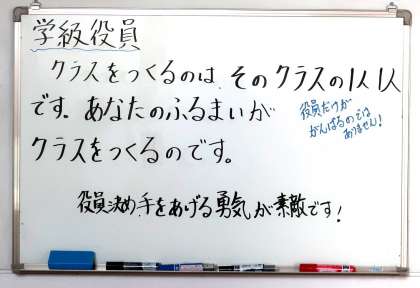 学級役員
クラスをつくるのは、そのクラスの1人1人
です。あなたのふるまいが
クラスをつくるのです。
役員だけが
がんばるのでは
ありません！
役員決め、手をあげる勇気が素敵です！